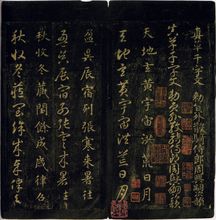 真草千字文 敕員外散騎侍郎周興嗣次韻
真草千字文 敕員外散騎侍郎周興嗣次韻
天地玄黃宇宙洪荒日月
天地玄黃宇宙洪荒日月
盈昃辰宿列張寒來暑往
盈昃辰宿列張寒來暑往
秋收冬藏閏餘成歲律
秋收冬藏閏餘成歲律